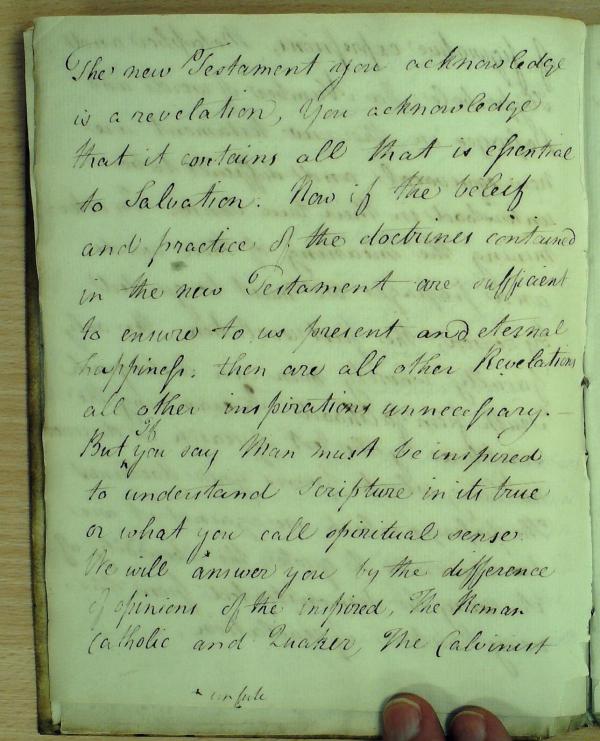 The new Testament you acknowledge
is a revelation, You acknowledge
that it contains all that is essential
to Salvation. Now if the beleif
and practice of the doctrines contained
in the new Testament are sufficient
to ensure to us present and eternal
happiness. then are all other Revelations
all other inspirations unnecessary. —
if
But ^ you say Man must be inspired
to understand Scripture in its true
or what you call spiritual sense.
We will * answer you by the difference
of opinions of the inspired, The Roman
Catholic and Quaker, The Calvinist
*